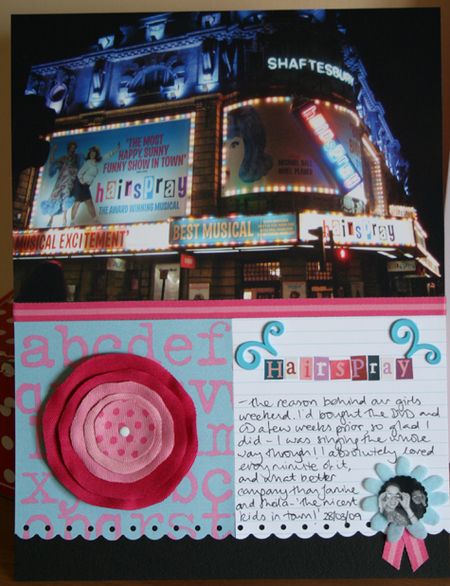 SHAFTESBURY
'THE MOST
HAPPY, SUNNY
FUNNY SHOW IN TOWN'
hairspray
THE AWARD WINNING MUSICAL
MICHAEL BALL
hairspray
MUSICAL EXCITEMENT'
BEST MUSICAL
hairspray
abcdef
HAIRSPRAY
- the reason behind our girls
weekend. I'd bought the DVD and
CD a few weeks prior, so glad I
did - I was singing the whole
way though!! I absolutely loved
every minute of it,
and what better
company than Janine
and Sheila - 'the nicest
kids in town!' 28/03/09